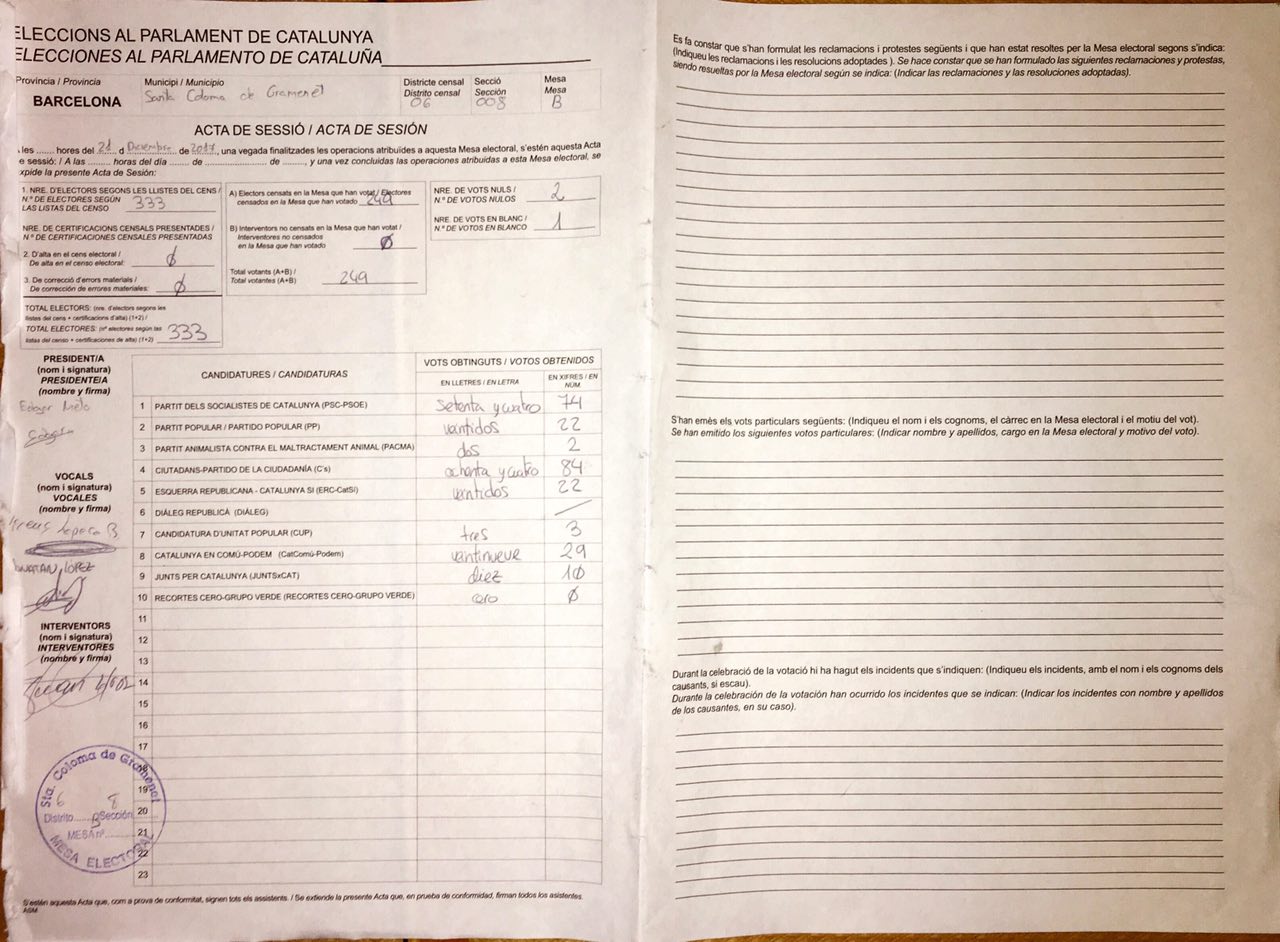 ELECCIONS AL PARLAMENT DE CATALUNYA
ELECCIONES AL PARLAMENTO DE CATALUÑA
Provincia / Provincia
BARCELONA
Municipi / Municipio
Santa Coloma de Gramenet
Districte censal
Distrito censal
06
Secció
Sección
008
Mesa
Mesa
B
ACTA DE SESSIÓ / ACTA DE SESIÓN
A les ........ hores del 21 d Diciembre de 2017, una vegada finalitzades les operacions atribuïdes a aquesta Mesa electoral, s'estén aquesta Acta
de sessió: / A las ......... horas del día ....... de ........................ de ........, y una vez concluidas las operaciones atribuidas a esta Mesa electoral, se
expide la presente Acta de Sesión:
1. NRE. D'ELECTORS SEGONS LES LLISTES DEL CENS /
N.º DE ELECTORES SEGÚN
LAS LISTAS DEL CENSO 333
NRE. DE CERTIFICACIONS CENSALS PRESENTADES /
N.º DE CERTIFICACIONES CENSALES PRESENTADAS
2. D'alta en el cens electoral /
De alta en el censo electoral: Ø
3. De correcció d'errors materials /
De corrección de errores materiales: Ø
TOTAL ELECTORS: (nre. d'electors segons les
llistes del cens + certificacions d'alta) (1+2) /
TOTAL ELECTORES: (nº electores según las
listas del censo + certificaciones de alta) (1+2) 333
A) Electors censats en la Mesa que han votat / Electores
censados en la Mesa que han votado 249
B) Interventors no censats en la Mesa que han votat /
Interventores no censados
en la Mesa que han votado Ø
Total votants (A+B) /
Total votantes (A+B) 249
NRE. DE VOTS NULS /
N.º DE VOTOS NULOS 2
NRE. DE VOTS EN BLANC /
N.º DE VOTOS EN BLANCO 1
PRESIDENT/A
(nom i signatura)
PRESIDENTE/A
(nombre y firma)
Edgar
VOCALS
(nom i signatura)
VOCALES
(nombre y firma)
LÓPEZ
INTERVENTORS
(nom i signatura)
INTERVENTORES
(nombre y firma)
CANDIDATURES / CANDIDATURAS
VOTS OBTINGUTS / VOTOS OBTENIDOS
EN LLETRES / EN LETRA
EN XIFRES / EN NÚM
1 PARTIT DELS SOCIALISTES DE CATALUNYA (PSC-PSOE) setenta y cuatro 74
2 PARTIT POPULAR / PARTIDO POPULAR (PP) vantidos 22
3 PARTIT ANIMALISTA CONTRA EL MALTRACTAMENT ANIMAL (PACMA) dos 2
4 CIUTADANS-PARTIDO DE LA CIUDADANÍA (C's) ochenta y cuatro 84
5 ESQUERRA REPUBLICANA - CATALUNYA SI (ERC-CatSí) vantidos 22
6 DIÀLEG REPUBLICÀ (DIÀLEG) /
7 CANDIDATURA D'UNITAT POPULAR (CUP) tres 3
8 CATALUNYA EN COMÚ-PODEM (CatComú-Podem) vantinueve 29
9 JUNTS PER CATALUNYA (JUNTSxCAT) diez 10
10 RECORTES CERO-GRUPO VERDE (RECORTES CERO-GRUPO VERDE) cero Ø
11
12
13
14
15
16
17
18
19
20
21
22
23
Sta. Coloma de Gramenet
6 8
Distrito ...... Sección
B
MESA nº
MESA ELECTORAL
S'estén aquesta Acta que, com a prova de conformitat, signen tots els assistents. / Se extiende la presente Acta que, en prueba de conformidad, firman todos los asistentes.
ASM
Es fa constar que s'han formulat les reclamacions i protestes següents i que han estat resoltes per la Mesa electoral segons s'indica:
(Indiqueu les reclamacions i les resolucions adoptades ). Se hace constar que se han formulado las siguientes reclamaciones y protestas,
siendo resueltas por la Mesa electoral según se indica: (Indicar las reclamaciones y las resoluciones adoptadas).
S'han emès els vots particulars següents: (Indiqueu el nom i els cognoms, el càrrec en la Mesa electoral i el motiu del vot).
Se han emitido los siguientes votos particulares: (Indicar nombre y apellidos, cargo en la Mesa electoral y motivo del voto).
Durant la celebració de la votació hi ha hagut els incidents que s'indiquen: (Indiqueu els incidents, amb el nom i els cognoms dels
causants, si escau).
Durante la celebración de la votación han ocurrido los incidentes que se indican: (Indicar los incidentes con nombre y apellidos
de los causantes, en su caso).